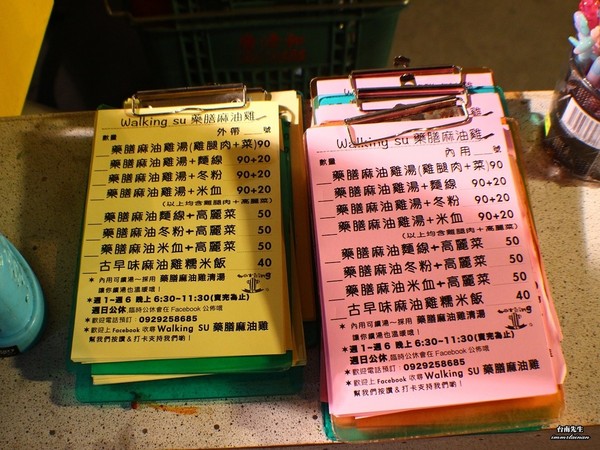 Walking su 藥膳麻油雞
數量 外帶 號
藥膳麻油雞湯(雞腿肉+菜)90
藥膳麻油雞湯+麵線 90+20
藥膳麻油雞湯+冬粉 90+20
藥膳麻油雞湯+米血 90+20
(以上均含雞腿肉+高麗菜)
藥膳麻油麵線+高麗菜 50
藥膳麻油冬粉+高麗菜 50
藥膳麻油米血+高麗菜 50
古早味麻油雞糯米飯 40
* 內用可續湯~採用 藥膳麻油雞清湯
讓你續湯也溫暖喔!
*週1~週6 晚上6:30-11:30(賣完為止)
週日公休,臨時公休會在 Facebook 公佈喔
*歡迎電話預訂: 0929258685
*歡迎上 Facebook 收尋 Walking SU 藥膳麻油雞
幫我們按讚&打卡支持我們喲!
Walking su 藥膳麻油雞
數量 內用 號
藥膳麻油雞湯(雞腿肉+菜)90
藥膳麻油雞湯+麵線 90+20
藥膳麻油雞湯+冬粉 90+20
藥膳麻油雞湯+米血 90+20
(以上均含雞腿肉+高麗菜)
藥膳麻油麵線+高麗菜 50
藥膳麻油冬粉+高麗菜 50
藥膳麻油米血+高麗菜 50
古早味麻油雞糯米飯 40
* 內用可續湯~採用 藥膳麻油雞清湯
讓你續湯也溫暖喔!
*週1~週6 晚上6:30-11:30(賣完為止)
週日公休,臨時公休會在 Facebook 公佈喔
*歡迎電話預訂: 0929258685
*歡迎上 Facebook 收尋 Walking SU 藥膳麻油雞
幫我們按讚&打卡支持我們喲!
台南先生